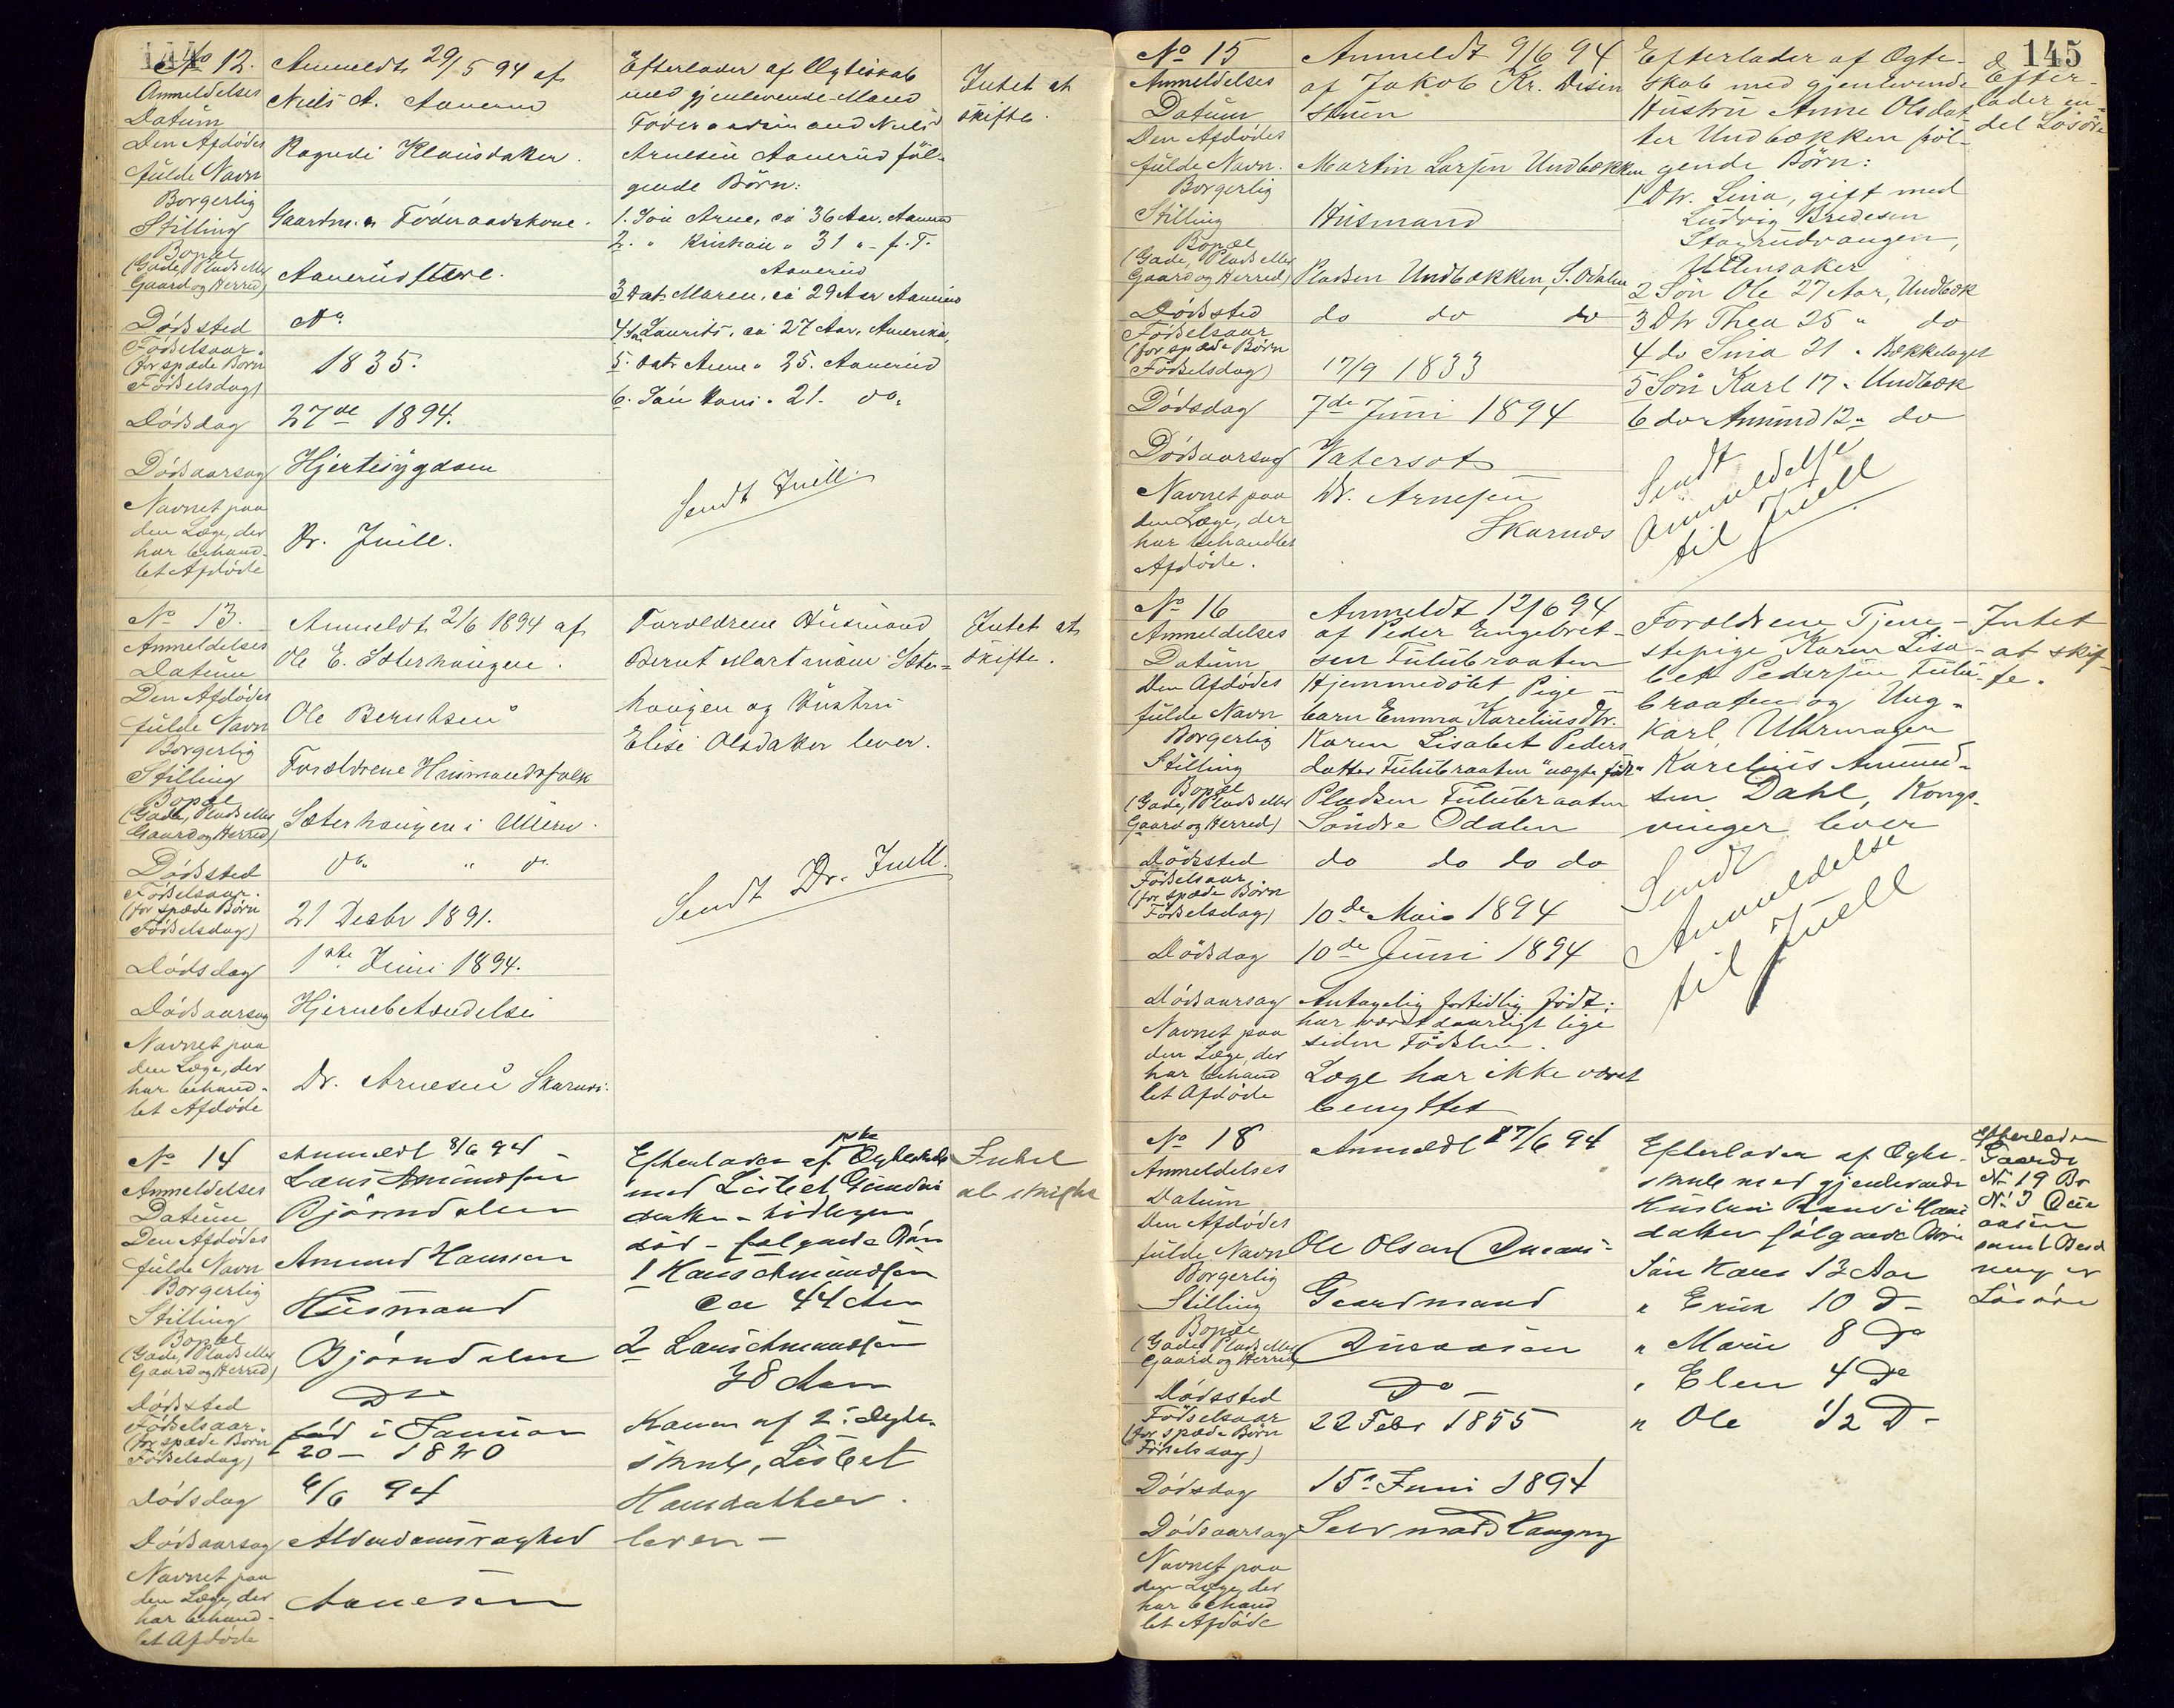 144
No 12.
Anmeldelses
Datum
Anmeldt 29/5 94 af
Niels A. Aanerud
Den Afdødes
fulde Navn
Ragndi Klausdatter.
Borgerlig
Stilling
Gaardm. Føderaadskone.
Bopæl
(Gade, Plads eller
Gaard og Herred)
Aanerud
Dødssted
Do
Fødselsaar.
(for spæde Børn
Fødselsdag)
1835.
Dødsdag
27de 1894.
Dødsaarsag
Hjertesygdom
Navnet paa
den Læge, der
har behand-
let Afdøde
Dr. Juell.
Efterlader af Ægteskab
med gjenlevende Mand
Føderaadsmand Niels
Arnesen Aanerud føl-
gende Børn:
1. Søn Arne, ca 36 Aar, Aanerud
2. " Kristian " 31 " - f. T.
Aanerud
3 Datr Maren, ca 29 Aar Aanerud
4 Søn Laurits, ca 27 Aar, Amerika,
5. Datr Anne " 25. Aanerud
6. Søn Hans " 21. do.
Sendt Juell.
Intet at
skifte.
No 13.
Anmeldelses
Datum
Anmeldt 2/6 1894 af
Ole E. Sæterhaugen.
Den Afdødes
fulde Navn
Ole Berntsen
Borgerlig
Stilling
Forældrene Husmandsfolk
Bopæl
(Gade, Plads eller
Gaard og Herred)
Sæterhaugen i Ulleren.
Dødssted
do " do
Fødselsaar.
(for spæde Børn
Fødselsdag)
21 Desbr 1891.
Dødsdag
1ste Juni 1894.
Dødsaarsag
Hjernebetændelse
Navnet paa
den Læge, der
har behand-
let Afdøde
Dr. Arnesen Skarnes.
Forældrene Husmand
Bernt Martinsen Sæter-
haugen og Hustru
Elise Olsdatter lever.
Sendt Dr. Juell.
Intet at
skifte.
No 14
Anmeldelses
Datum
Anmeldt 8/6 94
Lars Amundsen
Bjørndalen
Den Afdødes
fulde Navn
Amund Hansen
Borgerlig
Stilling
Husmand
Bopæl
(Gade, Plads eller
Gaard og Herred)
Bjørndalen
Dødssted
Do
Fødselsaar.
(for spæde Børn
Fødselsdag)
fød i Januar
20 - 1820
Dødsdag
6/6 94
Dødsaarsag
Alderdomssvaghed
Navnet paa
den Læge, der
har behand-
let Afdøde
Arnesen
Efterlader af Ægteskab
med Lisbet Gunders
datter - tidligere
død - følgende Børn
1 Hans Amundsen
ca 44 Aar
2 Lars Amundsen
38 Aar
Konen af 2. Ægte-
skab, Lisbet
Hansdatter
lever -
Intet
at skifte
145
No 15
Anmeldelses
Datum
Anmeldt 9/6 94
af Jakob Kr. Disen
stuen
Den Afdødes
fulde Navn.
Martin Larsen Undbækken
Borgerlig
Stilling
Husmand
Bopæl
(Gade, Plads eller
Gaard og Herred)
Pladsen Undbækken, S. Odalen
Dødssted
do do do
Fødselsaar
(for spæde Børn
Fødselsdag)
17/9 1833
Dødsdag
7de Juni 1894
Dødsaarsag
Vatersot
Navnet paa
den Læge, der
har behandlet
Afdøde.
Dr. Arnesen
Skarnes
Efterlader af Ægte-
skab med gjenlevende
Hustru Anne Olsdat-
ter Undbækken føl-
gende Børn:
1 Dtr. Lina, gift med
Ludvig Bredesen
Ullensaker
2 Søn Ole 27 Aar, Undbæk
3 Dtr Thea 25 " do
4 do Sina 21 " Bækkelaget
5 Søn Karl 17 " Undbæk
6 do Amund 12 " do
Sendt
Anmeldelse
til Juell
Efter-
lader en
del Løsøre
No 16
Anmeldelses
Datum
Anmeldt 12/6 94
af Peder Engebret-
sen Fulubraaten
Den Afdødes
fulde Navn
Hjemmedøbt Pige-
barn Emma Kareliusdtr.
Borgerlig
Stilling
Karen Lisabet Peders
datter Fulubraaten "uægte født"
Bopæl
(Gade, Plads eller
Gaard og Herred)
Pladsen Fulubraaten
Søndre Odalen
Dødssted
do do do do
Fødselsaar
(for spæde Børn
Fødselsdag)
10de Mai 1894
Dødsdag
10de Juni 1894
Dødsaarsag
Antagelig fortidlig født;
har været daarligt lige
siden Fødslen.
Navnet paa
den Læge, der
har behand
let Afdøde
Læge har ikke været
benyttet
Forældrene Tjene-
stepige Karen Lisa-
bet Pedersen Fulu-
braaten og Ung-
karl, Uhrmager
Karelius Amund-
sen Dahl, Kongs-
vinger lever
Sendt
Anmeldelse
til Juell
Intet
at skif-
te.
No 18
Anmeldelses
Datum
Anmeldt 17/6 94
Den Afdødes
fulde Navn
Ole Olsen
Borgerlig
Stilling
Gaardmand
Bopæl
(Gade, Plads eller
Gaard og Herred)
Dødssted
Do -
Fødselsaar
(for spæde Børn
Fødselsdag)
22 Febr 1855
Dødsdag
15 Juni 1894
Dødsaarsag
Selvmord Hængning
Navnet paa
den Læge, der
har behand
let Afdøde
Efterlader af Ægte-
skab med gjenlevende
Hustru Hans
datter følgende Børn
Søn Hans 13 Aar
" Erik 10 D -
" Marie 8 Do
" Elen 4 Do
" Ole 1/2 D -
Efterlader
Gaards
No 19 Br
No 3
samt Besæt
ning og
Løsøre